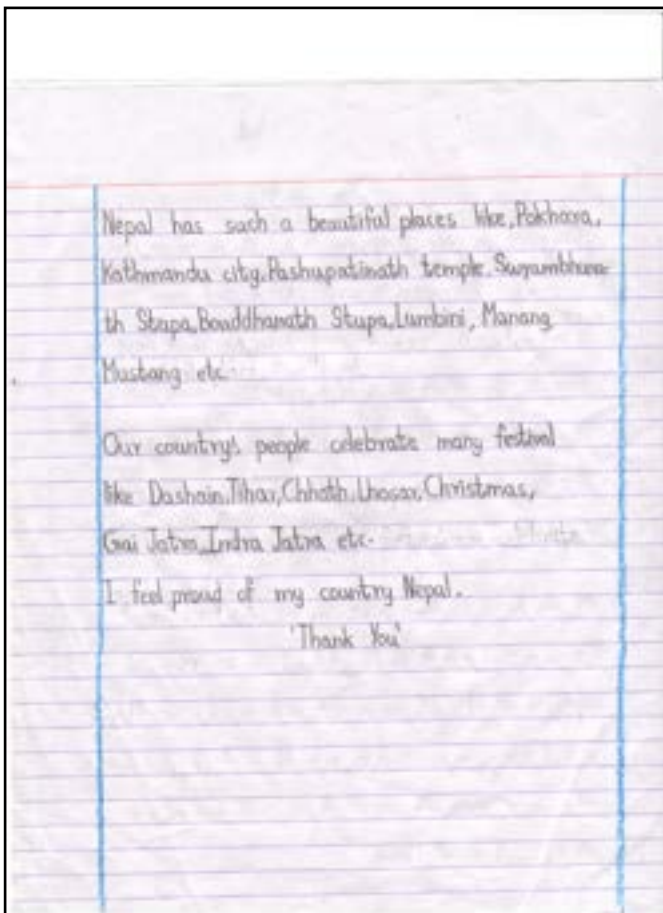 Nepal has such a beautiful places like, Pokhara,
Kathmandu city, Pashupatinath temple, Swyambhuna-
th Stupa, Bouddhanath Stupa, Lumbini, Manang,
Mustang etc.
Our country's people celebrate many festival
like Dashain, Tihar, Chhath, Lhosar, Christmas,
Gai Jatra, Indra Jatra etc.
I feel proud of my country Nepal.
'Thank You'